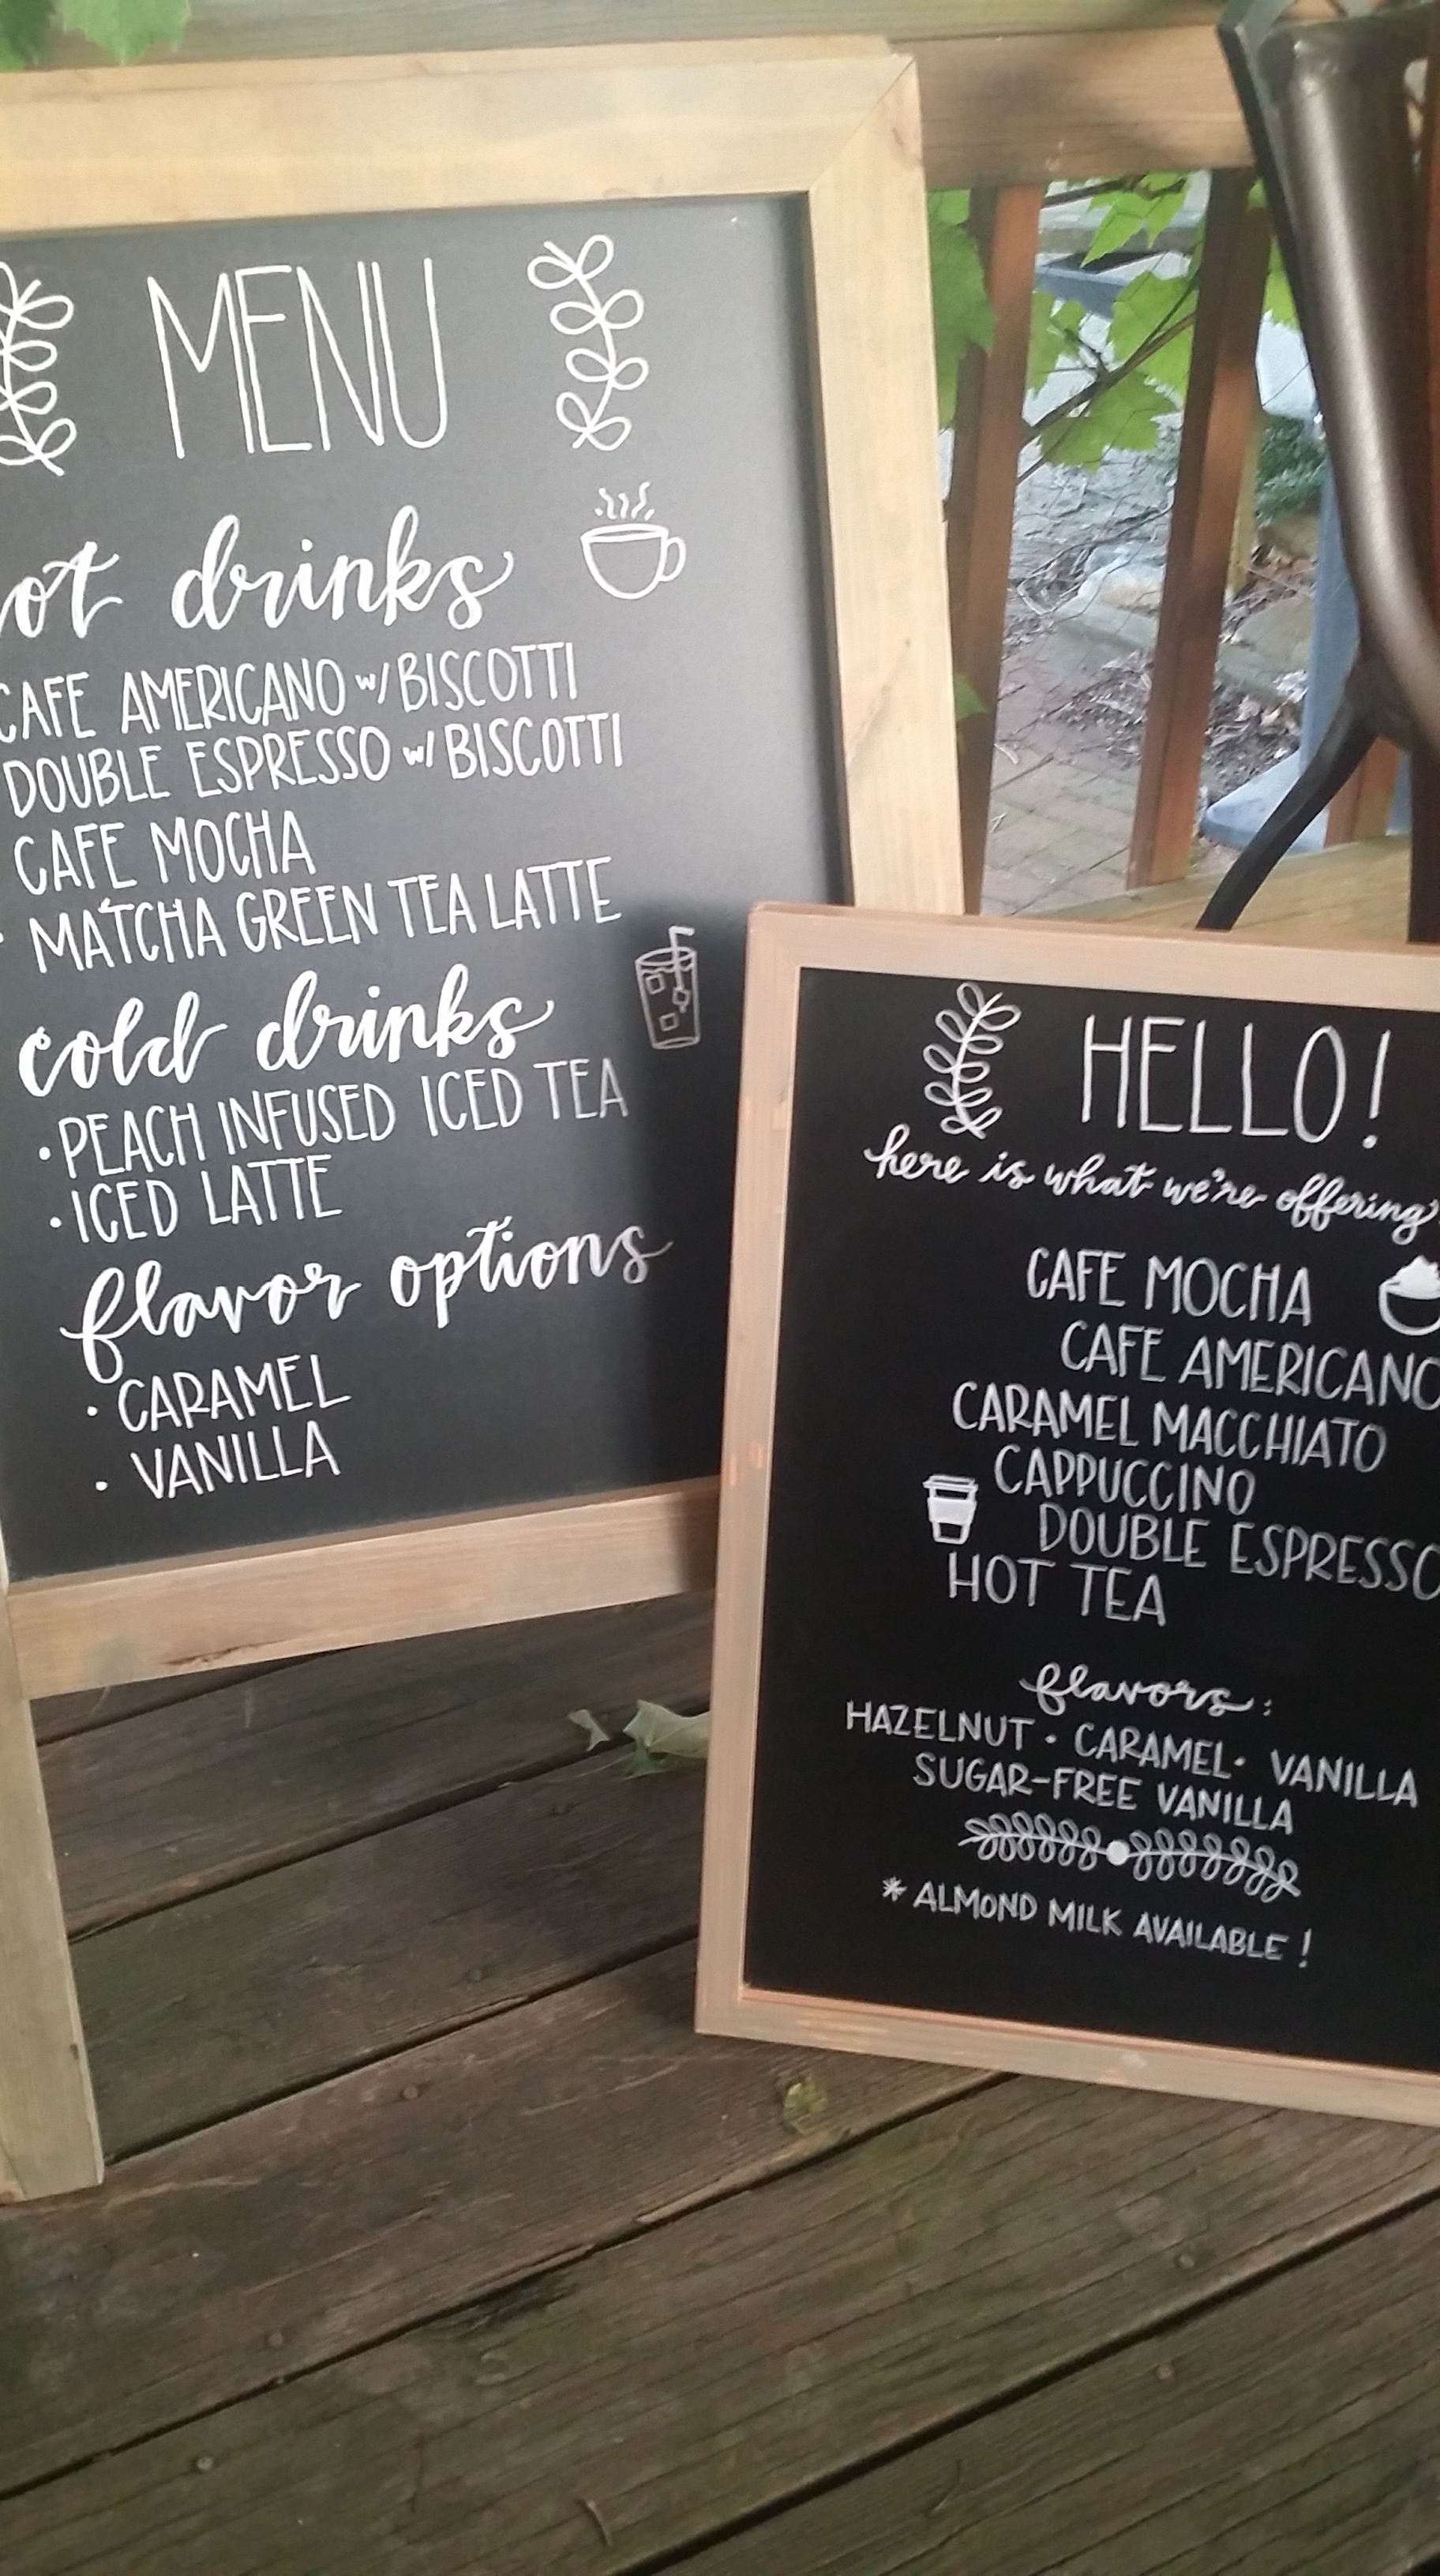 MENU
hot drinks
CAFE AMERICANO w/ BISCOTTI
DOUBLE ESPRESSO w/ BISCOTTI
CAFE MOCHA
• MATCHA GREEN TEA LATTE
cold drinks
• PEACH INFUSED ICED TEA
• ICED LATTE
flavor options
• CARAMEL
• VANILLA
HELLO!
here is what we're offering
CAFE MOCHA
CAFE AMERICANO
CARAMEL MACCHIATO
CAPPUCCINO
DOUBLE ESPRESSO
HOT TEA
flavors:
HAZELNUT • CARAMEL • VANILLA
SUGAR-FREE VANILLA
* ALMOND MILK AVAILABLE!